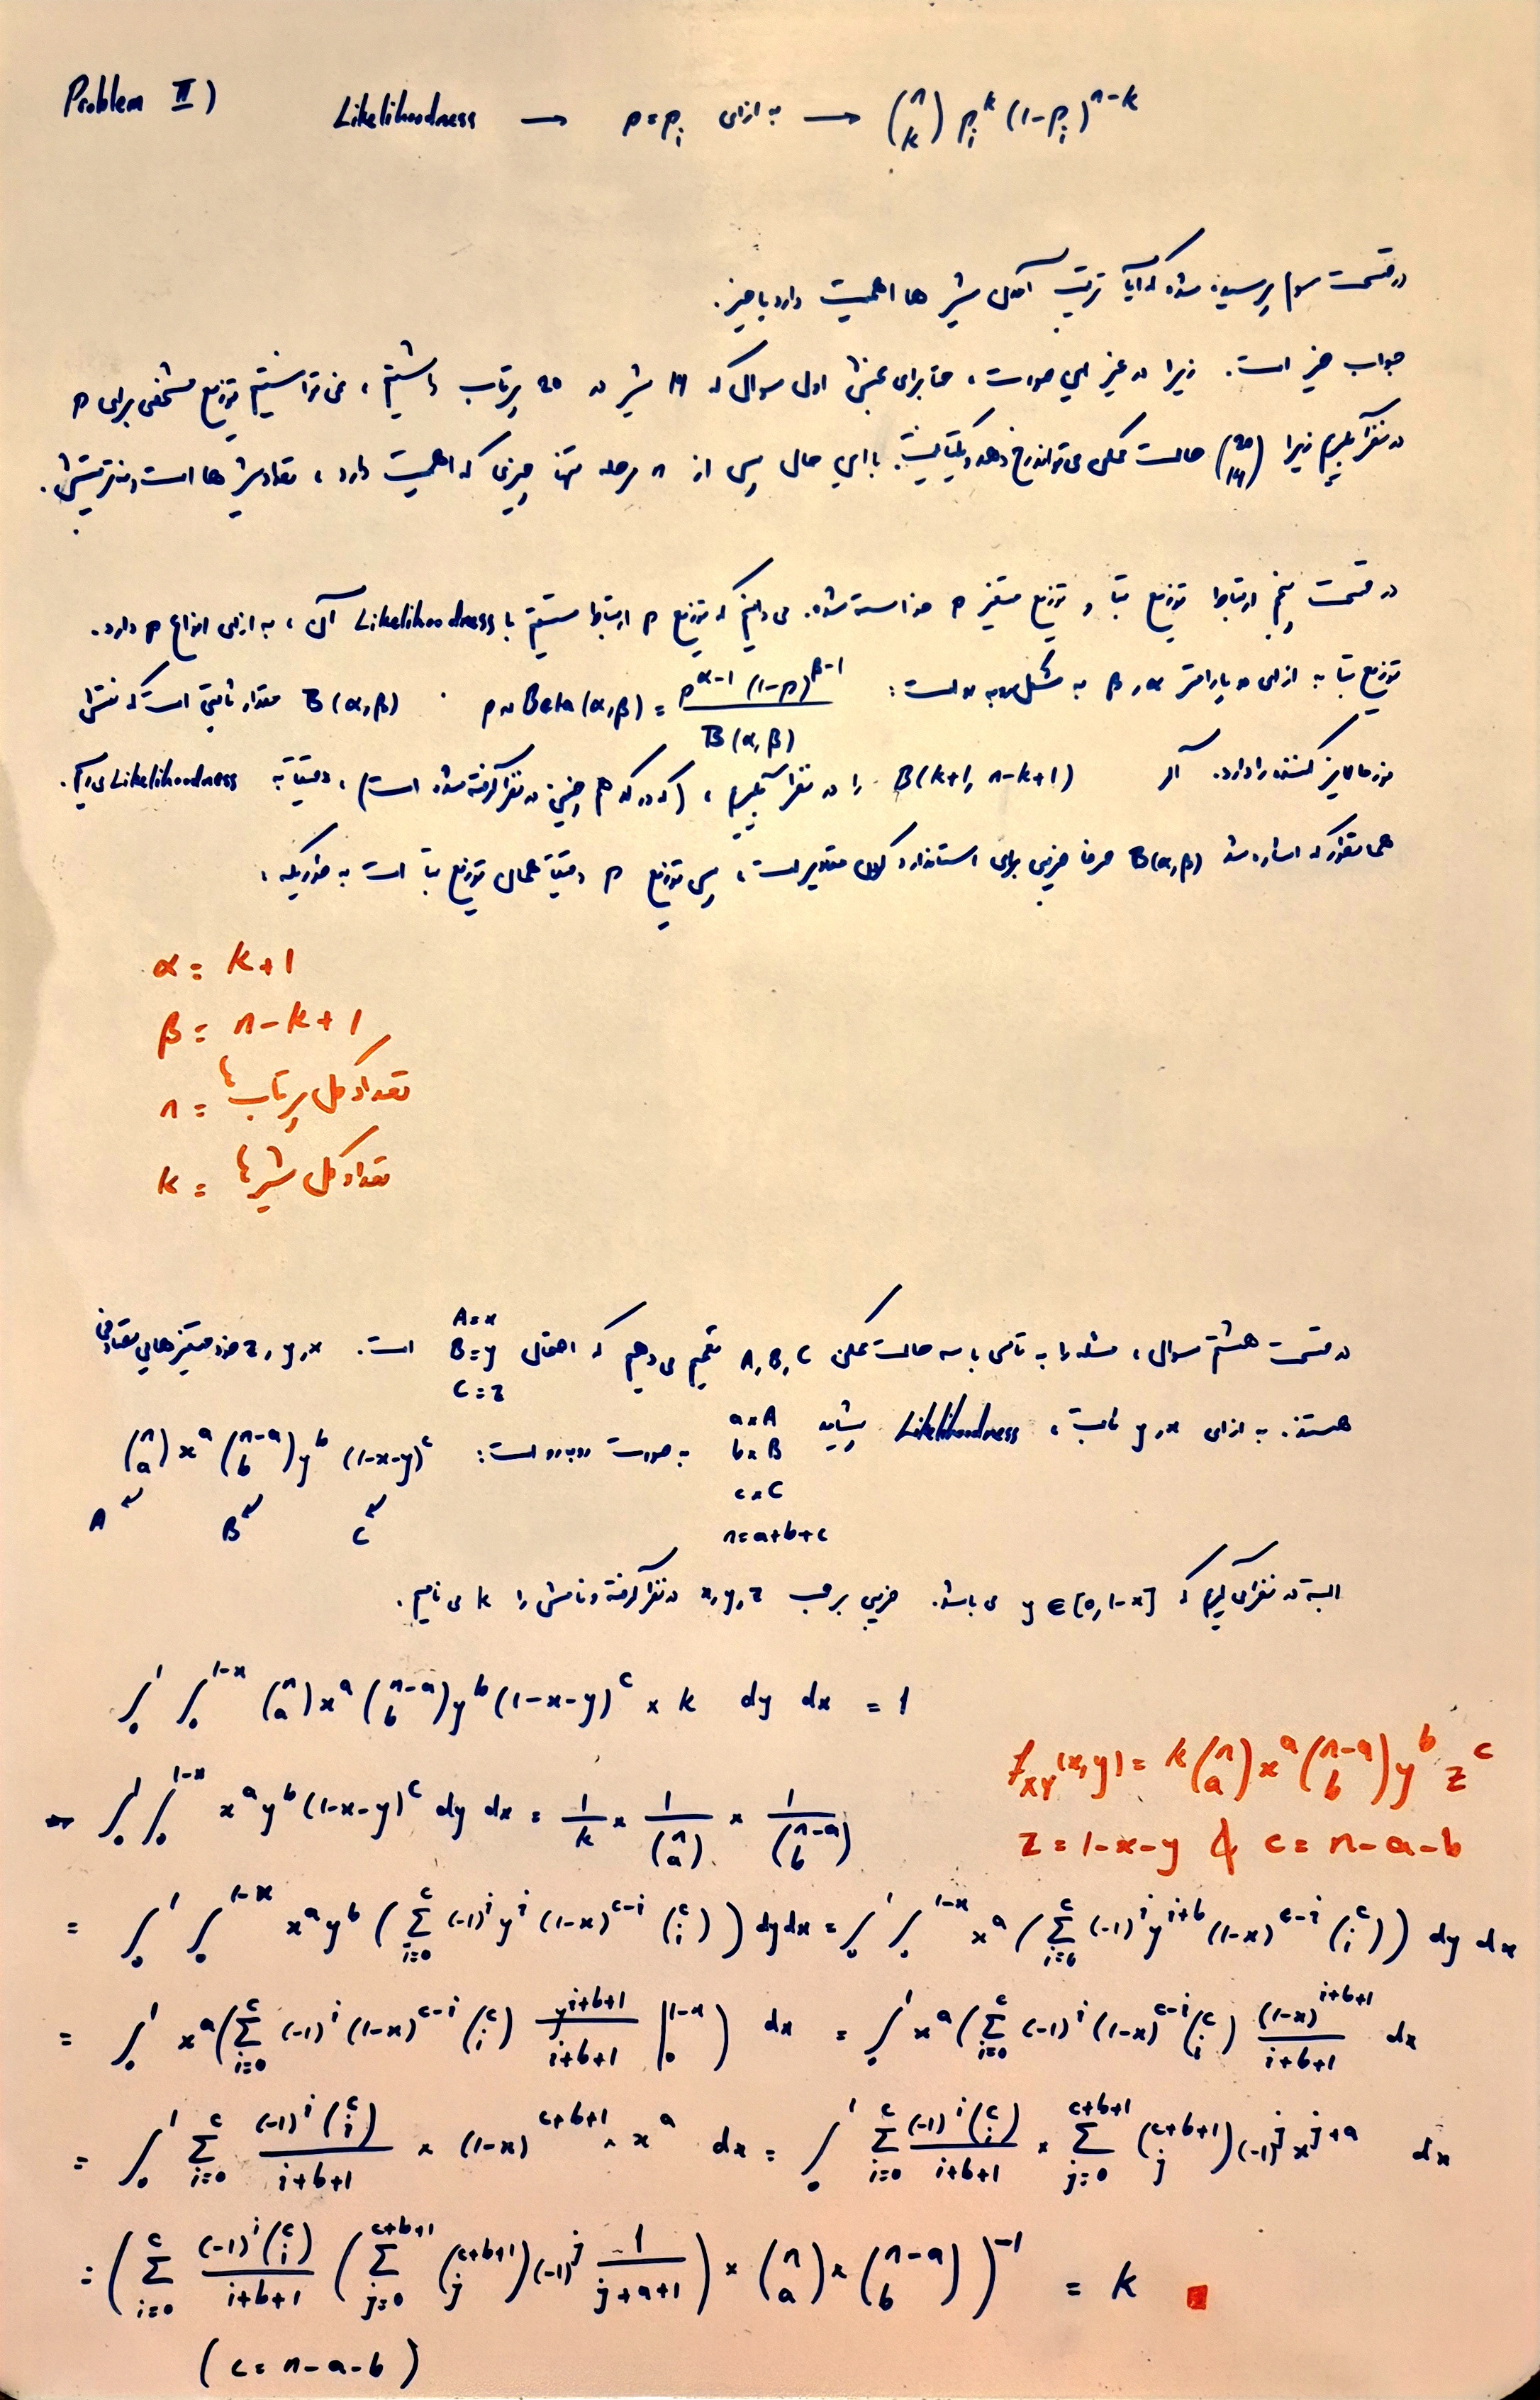 Problem II)
Likelihoodness → p=p_i به ازای → (n k) p_i^k (1-p_i)^{n-k}
در قسمت سوم پرسیده شده که آیا ترتیب آمدن شیر ها اهمیت دارد یا خیر.
جواب خیر است. زیرا در غیر این صورت، حتا برای بخش اول سوال که 14 شیر در 20 پرتاب داشتیم، نمی توانستیم توزیع مشخصی برای p
در نظر بگیریم زیرا (20 14) حالت ممکن می تواند رخ دهد و یکتا نیست. با این حال پس از n مرحله تنها چیزی که اهمیت دارد، تعداد شیر ها است و نه ترتیبش.
در قسمت پنجم ارتباط توزیع بتا و توزیع متغیر p خواسته شده. می دانیم که توزیع p ارتباط مستقیم با Likelihoodness آن، به ازای انواع p دارد.
توزیع بتا به ازای دو پارامتر α, β به شکل روبه رو است: p ~ Beta(α,β) = p^{α-1} (1-p)^{β-1} / B(α,β) . B(α,β) مقدار ثابتی است که نقش
نرمالایز کننده را دارد. اگر B(k+1, n-k+1) را در نظر بگیریم، (که در کد هم چنین در نظر گرفته شده است)، دقیقا به Likelihoodness می رسیم.
همانطور که اشاره شد B(α,β) صرفا ضریبی برای استاندارد کردن مقادیر است، پس توزیع p دقیقا همان توزیع بتا است به طوریکه:
α = k+1
β = n-k+1
n = تعداد کل پرتاب ها
k = تعداد کل شیر ها
در قسمت هشتم سوال، مسئله را به تاسی با سه حالت ممکن A, B, C تعمیم می دهیم که احتمال A=x B=y C=z است. x, y, z خود متغیرهایی تصادفی
هستند. به ازای x, y ثابت، Likelihoodness پیشامد a×A b×B c×C n=a+b+c به صورت روبه رو است: (n a) x^a (n-a b) y^b (1-x-y)^c
A B C
البته در نظر می گیریم که y ∈ [0, 1-x] می باشد. ضریبی برحسب x, y, z در نظر گرفته و نامش را k می نامیم.
∫_0^1 ∫_0^{1-x} (n a) x^a (n-a b) y^b (1-x-y)^c × k dy dx = 1
f_{XY}(x,y) = k (n a) x^a (n-a b) y^b z^c
z = 1-x-y & c = n-a-b
→ ∫_0^1 ∫_0^{1-x} x^a y^b (1-x-y)^c dy dx = 1/k × 1/(n a) × 1/(n-a b)
= ∫_0^1 ∫_0^{1-x} x^a y^b (Σ_{i=0}^c (-1)^i y^i (1-x)^{c-i} (c i)) dy dx = ∫_0^1 ∫_0^{1-x} x^a (Σ_{i=0}^c (-1)^i y^{i+b} (1-x)^{c-i} (c i)) dy dx
= ∫_0^1 x^a (Σ_{i=0}^c (-1)^i (1-x)^{c-i} (c i) y^{i+b+1}/(i+b+1) |_0^{1-x}) dx = ∫_0^1 x^a (Σ_{i=0}^c (-1)^i (1-x)^{c-i} (c i) (1-x)^{i+b+1}/(i+b+1) dx
= ∫_0^1 Σ_{i=0}^c (-1)^i (c i)/(i+b+1) × (1-x)^{c+b+1} × x^a dx = ∫_0^1 Σ_{i=0}^c (-1)^i (c i)/(i+b+1) × Σ_{j=0}^{c+b+1} (c+b+1 j) (-1)^j x^{j+a} dx
= (Σ_{i=0}^c (-1)^i (c i)/(i+b+1) (Σ_{j=0}^{c+b+1} (c+b+1 j) (-1)^j 1/(j+a+1)) × (n a) × (n-a b))^{-1} = k
(c = n-a-b)